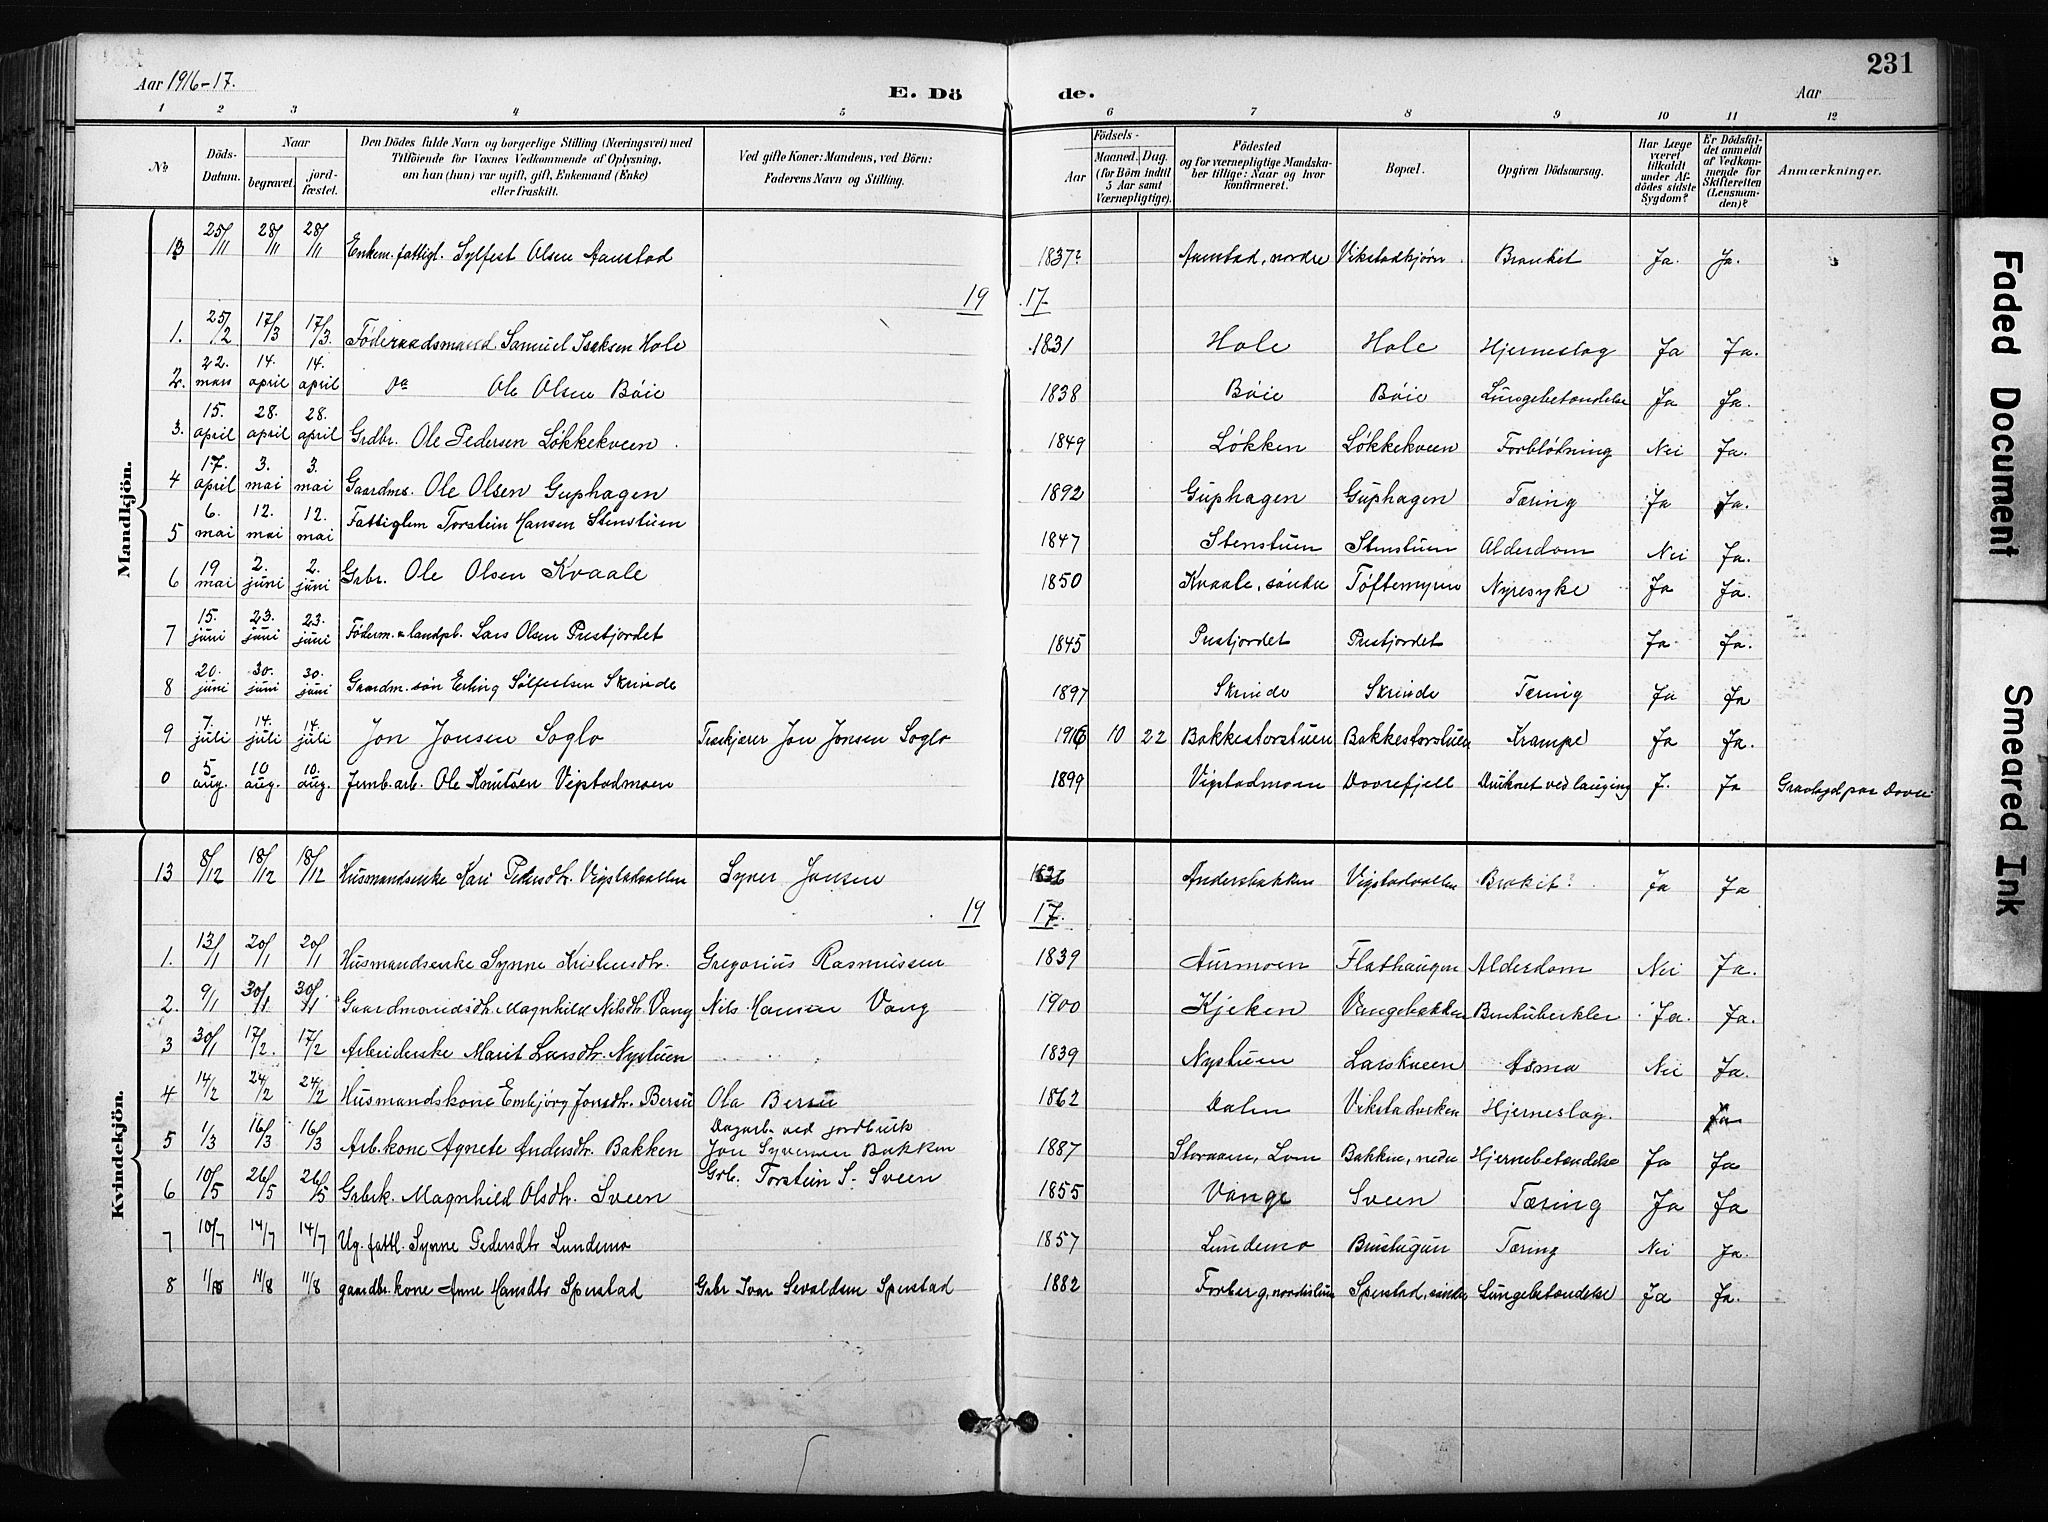 231
Aar 1916-17. E. Dö de. Aar
1 2 3 4 5 6 7 8 9 10 11 12
No Döds-Datum. Naar begravet. jord-fæstet. Den Dödes fulde Navn og borgerlige Stilling (Næringsvei) med Tilföiende for Voxnes Vedkommende af Oplysning, om han (hun) var ugift, gift, Enkemand (Enke) eller fraskilt. Ved gifte Koner: Mandens, ved Börn: Faderens Navn og Stilling. Födsels- Aar Maaned. Dag. (for Börn indtil 5 Aar samt Værnepligtige). Födested og for værnepligtige Mandskaber tillige: Naar og hvor konfirmeret. Bopæl. Opgiven Dödsaarsag. Har Læge været tilkaldt under Afdödes sidste Sygdom? Er Dödsfaldet anmeldt af Vedkommende for Skifteretten (Lensmanden)? Anmærkninger.
Mandkjön.
13 25/11 28/11 28/11 Enkem. fattigl. Sylfest Olsen Aanstad 1837? Aanstad, nordre Vikstadkjørn Ja. Ja.
19 17
1. 25/2 17/3 17/3. Föderaadsmand Samuel Isaksen Hole 1831 Hole Hole Hjerneslag Ja Ja.
2. 22. mars 14. april 14. april Do Ole Olsen Böie 1838 Böie Böie Lungebetændelse Ja Ja.
3. 15. april 28. april 28. april Grdbr. Ole Pedersen Løkkekveen 1849 Løkken Løkkekveen Forblödning Nei Ja.
4 17. april 3. mai 3. mai Gaardms. Ole Olsen Guphagen 1892 Guphagen Guphagen Tæring Ja Ja.
5 6. mai 12. mai 12. mai Fattiglem Torstein Hansen Stenstuen 1847 Stenstuen Stenstuen Alderdom Nei Ja.
6 19 mai 2. juni 2. juni Grbr. Ole Olsen Kvaale 1850 Kvaale, söndre Töftemyren Nyresyke Ja Ja.
7 15. juni 23. juni 23. juni Föderm. & landpb. Lars Olsen Prestjordet 1845 Prestjordet Prestjordet Ja Ja.
8 20. juni 30. juni 30. juni Gaardm. sön Erling Sölfestsen Skrinde 1897 Skrinde Skrinde Tæring Ja Ja
9 7. juli 14. juli 14. juli Jon Jonsen Soglo Træskjærer Jon Jonsen Soglo 1916 10 22 Bakkestorstuen Bakkestorstuen Krampe Ja Ja.
0 5 aug. 10 aug. 10. aug. Jernb.arb. Ole Knutsen Vigstadmoen 1899 Vigstadmoen Dovrefjell Druknet ved lauging J. Ja Gravlagd paa Dovre
Kvindekjön.
13 8/12 18/12 18/12 Husmandsenke Kari Pedersdtr. Vigstadvallen Syver Jonsen Andersbakken Vigstadvallen Ja Ja
19 17.
1. 13/1 20/1 20/1 Husmandsenke Synne Kristensdtr. Gregorius Rasmussen 1839 Aurmoen Flathaugen Alderdom Nei Ja.
2. 9/1 30/1 30/1 Gaardmandsdtr. Magnhild Nilsdtr. Vang Nils Hansen Vang 1900 Kjeken Vangsbakken Bentuberkler Ja. Ja.
3 30/1 17/2. 17/2 Arbeiderske Marit Larsdtr. Nystuen 1839 Nystuen Larskveen Asma Nei Ja.
4 14/2 24/2 24/2 Husmandskone Embjörg Jonsdtr. Bersu Ola Bersu 1862 Dalen Hjerneslag. Ja
5 1/3 16/3 16/3 Arb.kone Agnete Andersdtr. Bakken Dagarb. ved jordbruk Jon Syversen Bakken 1887 Storaaen, Lom Bakken, nedre Hjernebetændelse Ja Ja
6 10/5 26/5 26/5 Grbrk. Magnhild Olsdtr. Sveen Grb. Torstein S. Sveen 1855 Vange Sveen Tæring Ja Ja
7 10/7 14/7 14/7 Ug. fattl. Synne Pedersdtr Lundemo 1857 Lundemo Brustugun Tæring Nei Ja.
8 11/8 11/8 gaardbr.kone Anne Hansdtr Sperstad Grbr Ivar Sevaldsen Sperstad 1882 Forberg, nordistuen Sperstad, söndre Lungebetændelse Ja Ja.
Faded Document
Smeared Ink